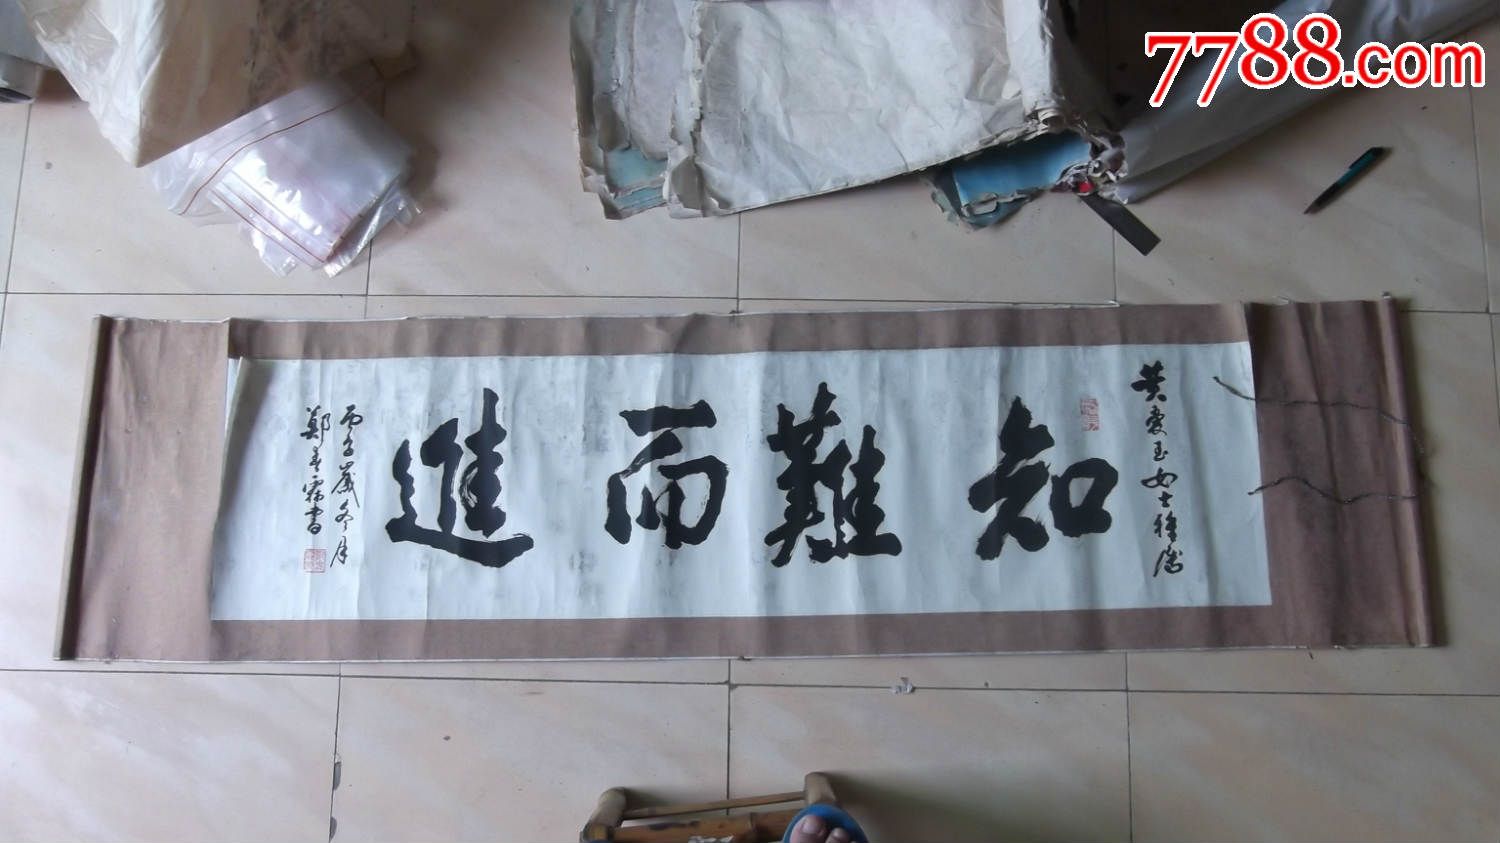 7788.com
黄爱玉女士雅属
知難而進
丙子歲冬月
鄭春霖書